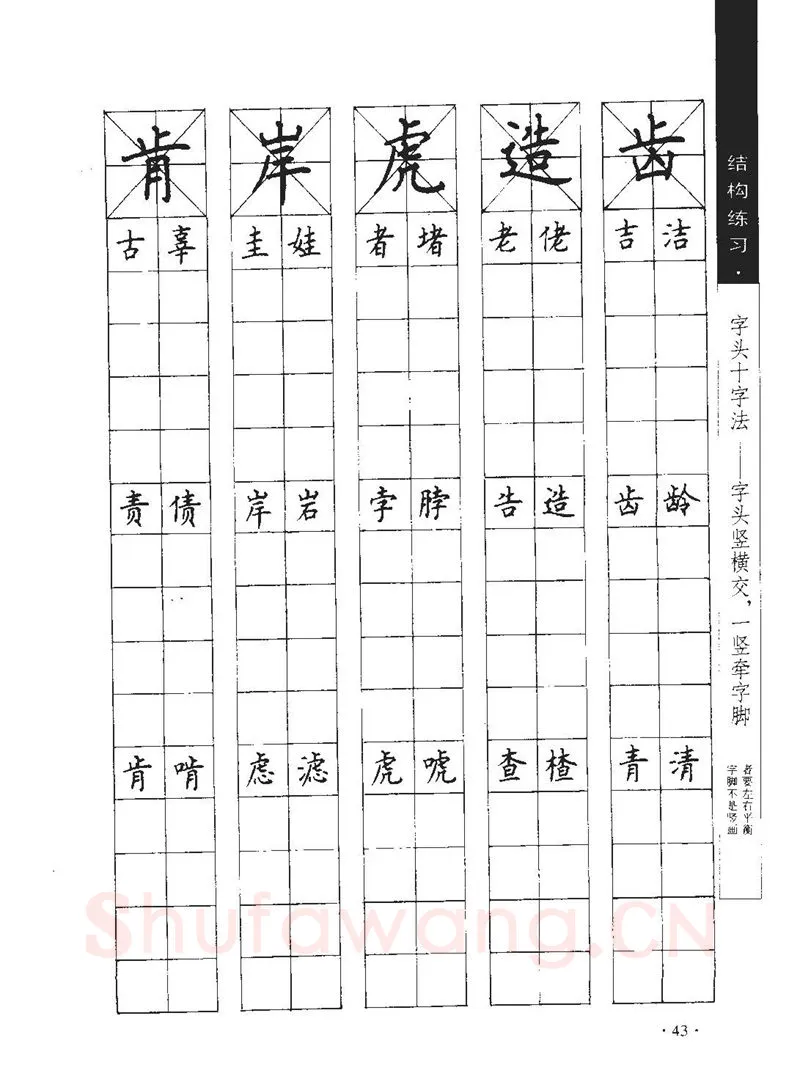 结构练习·
字头十字法——字头竖横交，一竖牵字脚
字脚不是竖画
者要左右平衡
肯 岸 虎 造 齿
古 辜 圭 娃 者 堵 老 佬 吉 洁
责 债 岸 岩 孛 脖 告 造 齿 龄
肯 啃 虑 滤 虎 唬 查 楂 青 清
Shufawang.CN
·43·